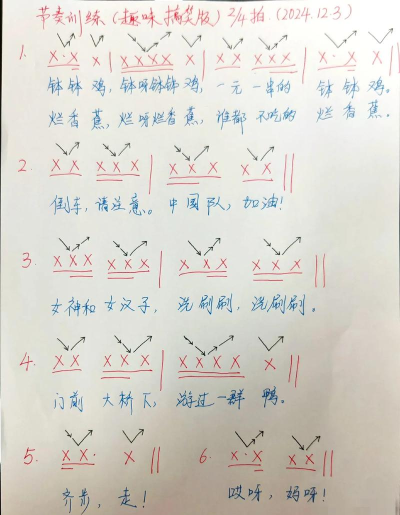 节奏训练(趣味搞笑版) 2/4拍 (2024.12.3)
1. X· X X | X X X X X | X X X X X | X· X X ||
钵钵鸡,钵呀钵钵鸡,一元一串的 钵钵鸡。
烂香蕉,烂呀烂香蕉,谁都不吃的 烂香蕉。
2. X X X X X | X X X X X ||
倒车,请注意。中国队,加油!
3. X X X X X X | X X X X X X ||
女神和女汉子,洗刷刷,洗刷刷。
4. X X X X X | X X X X X ||
门前 大桥下,游过一群 鸭。
5. X X· X || 6. X· X X X ||
齐步,走! 哎呀,妈呀!